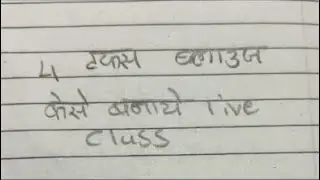 4 टक्स ब्लाउज
केसे बनाये live
class